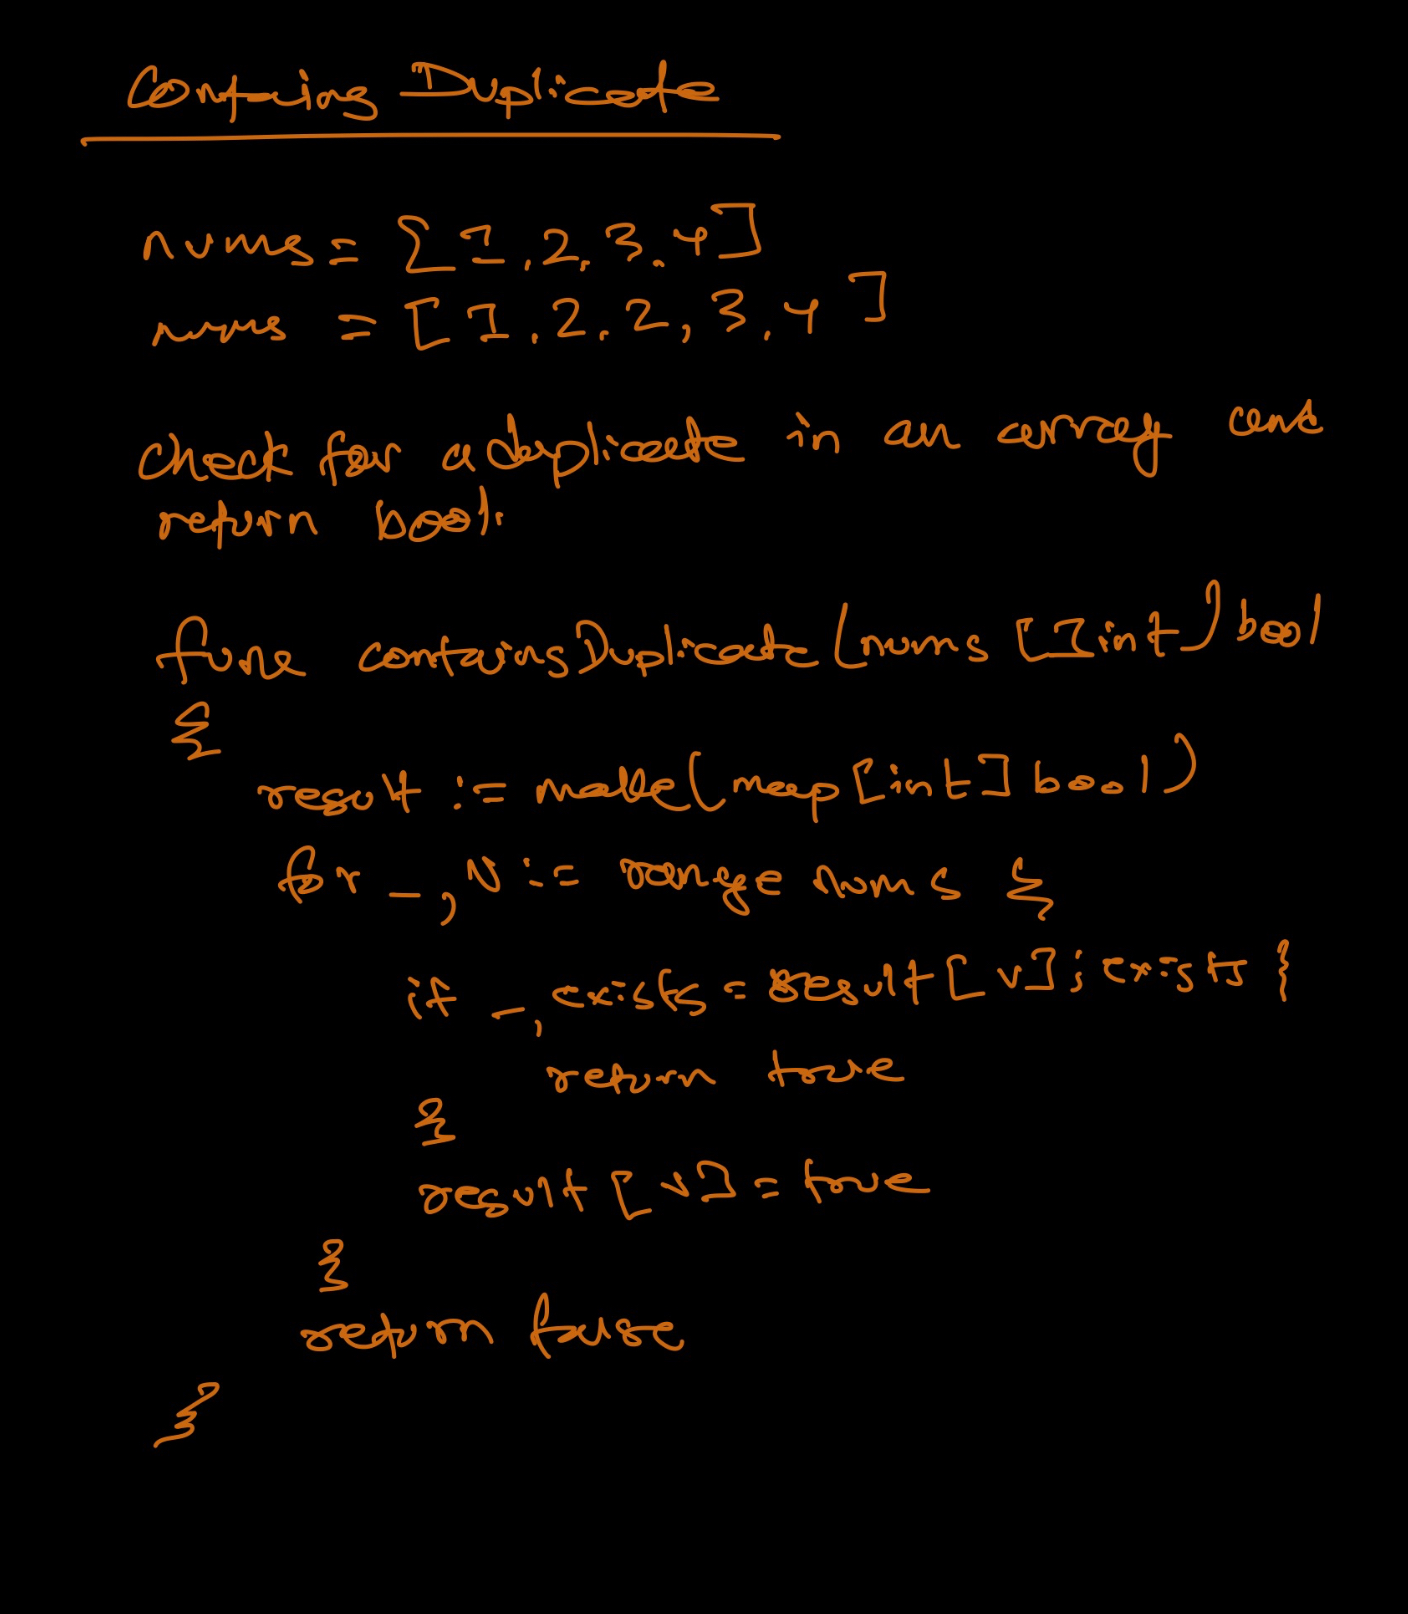 Contaings Duplicate
nums = [1,2,3,4]
nums = [1,2,2,3,4]
Check for a duplicate in an array and
return bool.
func containsDuplicate(nums []int) bool
{
result := make(map[int]bool)
for _, v := range nums {
if _, exists = result[v]; exists {
return true
}
result[v] = true
}
return false
}